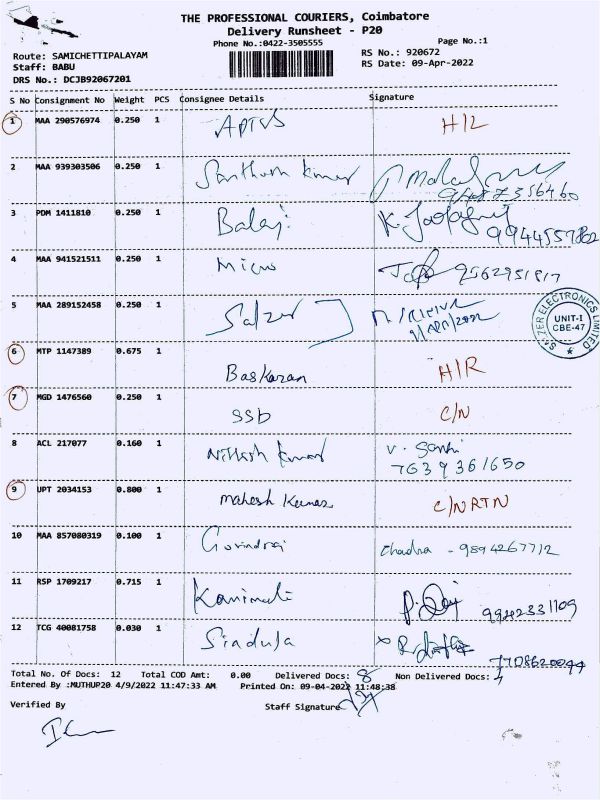 THE PROFESSIONAL COURIERS, Coimbatore
Delivery Runsheet - P20
Phone No.:0422-3505555
Page No.:1
Route: SAMICHETTIPALAYAM
Staff: BABU
DRS No.: DCJB92067201
RS No.: 920672
RS Date: 09-Apr-2022
S No Consignment No Weight PCS Consignee Details Signature
1 MAA 290576974 0.250 1
2 MAA 939303506 0.250 1 Kumar
3 PDM 1411810 0.250 1 Balaji
4 MAA 941521511 0.250 1 Micro 9562951817
5 MAA 289152458 0.250 1 Salzer
SALZER ELECTRONICS LIMITED
UNIT-I
CBE-47
6 MTP 1147389 0.675 1 Baskaran H/R
7 MGD 1476560 0.250 1 SSD C/N
8 ACL 217077 0.160 1 Nithish Kumar
7639361650
9 UPT 2034153 0.800 1 Mahesh Kumar C/N RTN
10 MAA 857080319 0.100 1 Govindraj Chadra - 9894267712
11 RSP 1709217 0.715 1 9942331109
12 TCG 40081758 0.030 1
Total No. Of Docs: 12 Total COD Amt: 0.00 Delivered Docs: 8 Non Delivered Docs: 4
Entered By :MUTHUP20 4/9/2022 11:47:33 AM Printed On: 09-04-2022 11:48:38
Verified By Staff Signature